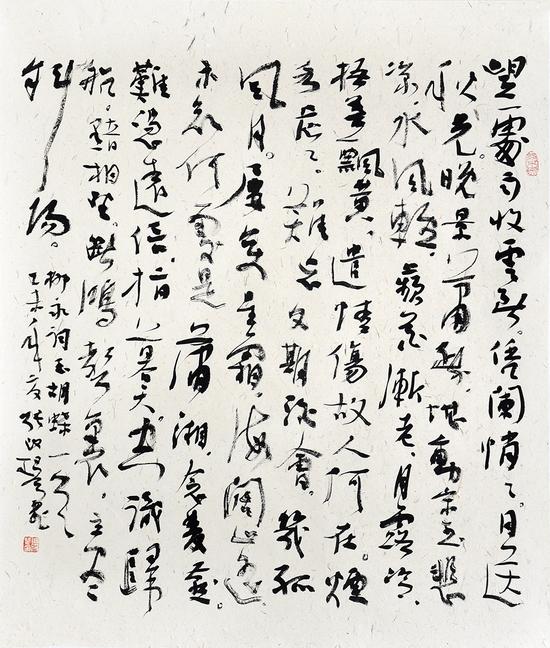 望處雨收雲斷。凭闌悄悄。目送
秋光。晚景蕭疏。堪動宋玉悲
涼。水風輕。蘋花漸老。月露冷。
梧葉飄黄。遣情傷。故人何在。煙
水茫茫。難忘。文期酒會。幾孤
風月。屢變星霜。海闊山遥。
未知何處是瀟湘。念雙燕。
難憑遠信。指暮天。空識歸
航。黯相望。斷鴻聲裏。立盡
斜陽。
柳永詞玉胡蝶一首
乙未年夏張